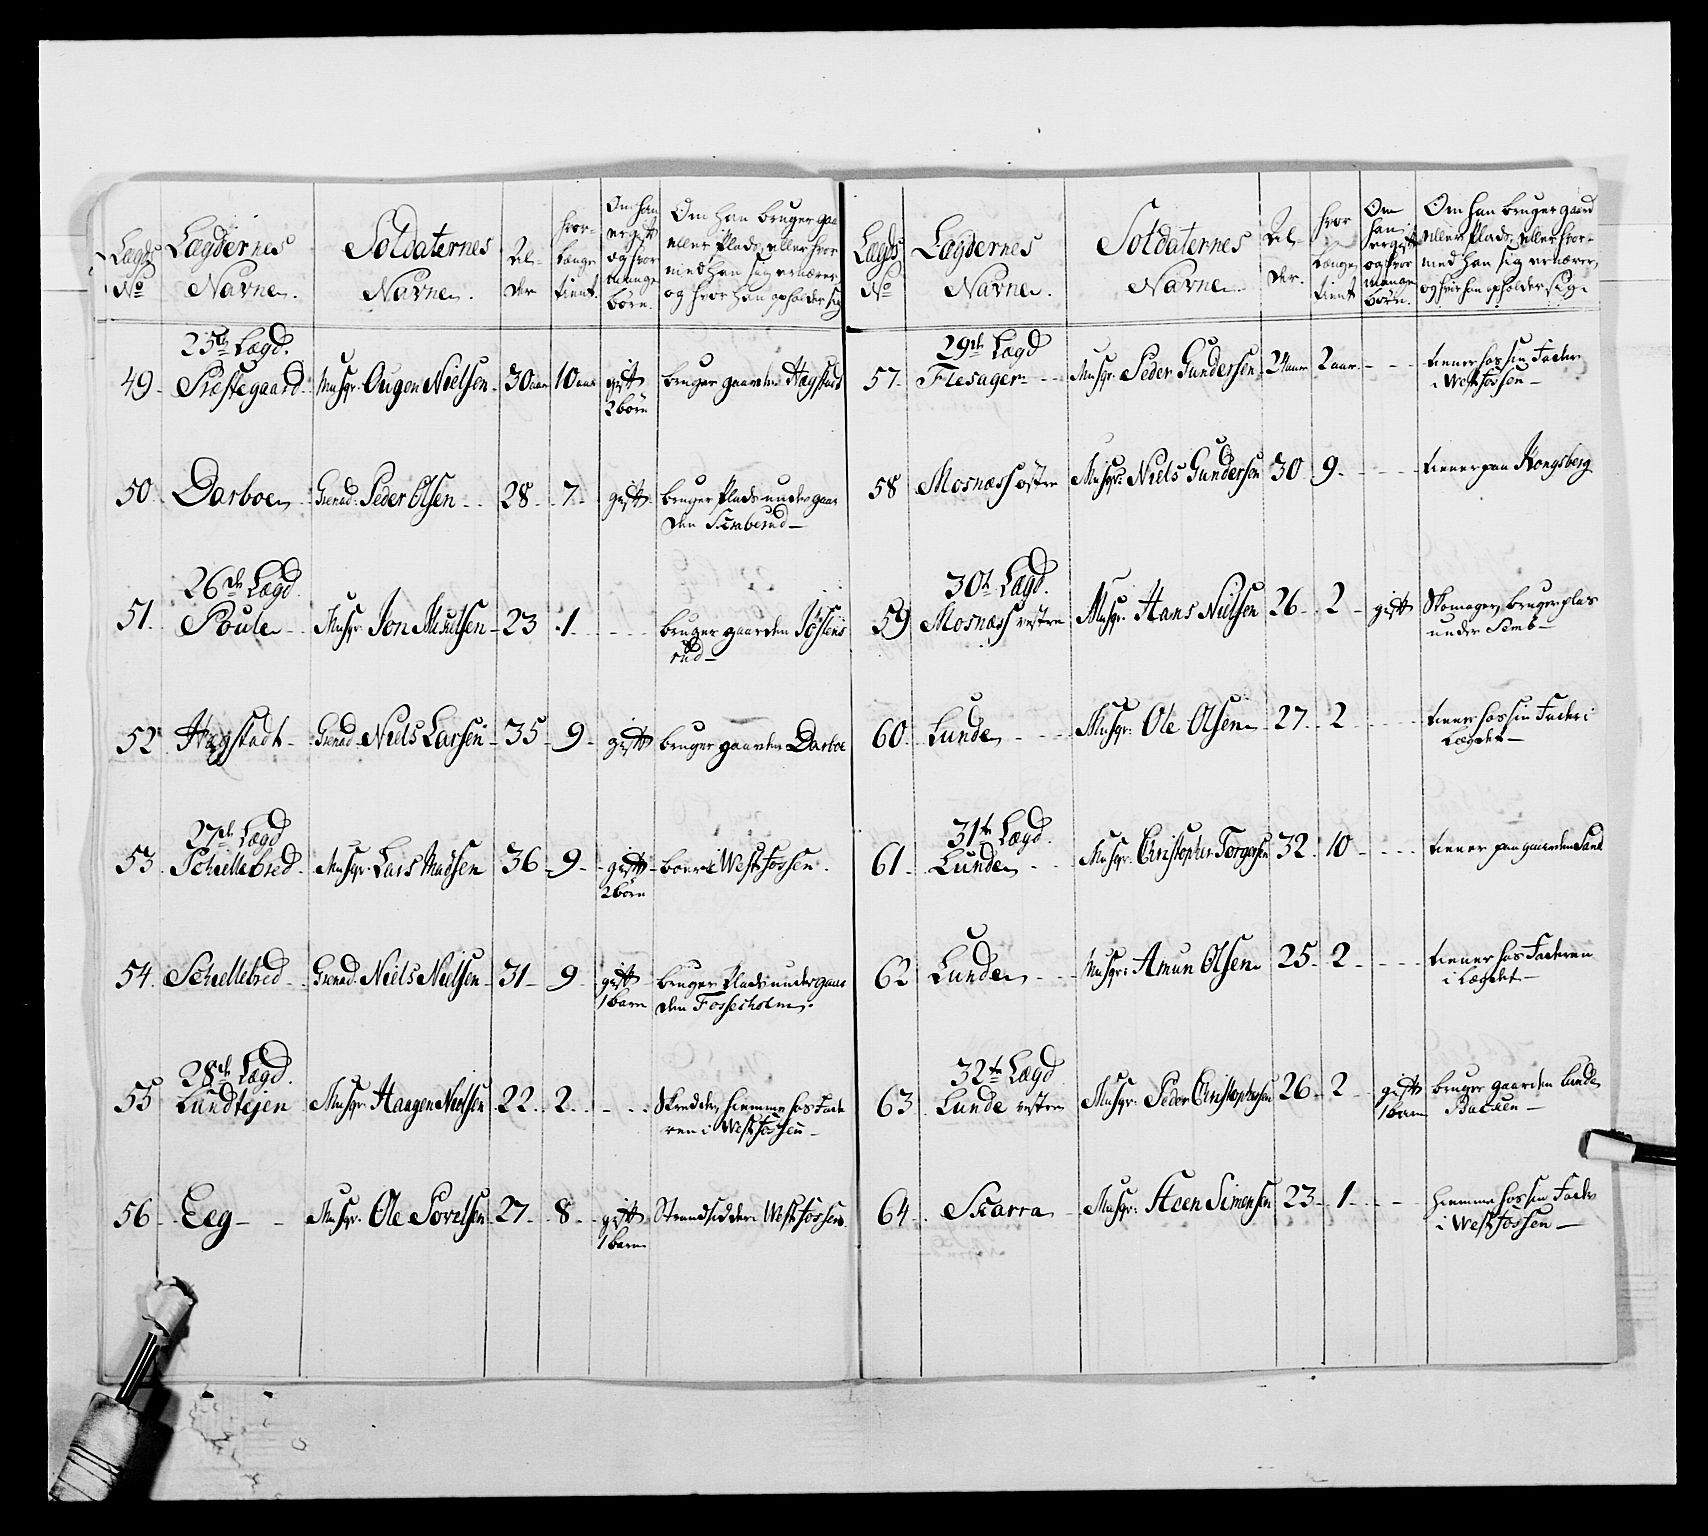 Lægds No
Lægdernes Navne.
Soldaternes Navne.
Al-der
hvor-længe tient.
Om han er gift og hvor mange børn.
Om han bruger gaard eller Plads, eller hvor med han sig ernærer og hvor han opholder sig
25de Lægd.
49. Præstegaard. Musqr: Ougen Nielsen. 30 aar 10 aar gift bruger gaarden Hægstad
2 børn
50. Darboe Grenad: Peder Olsen 28. 7. gift bruger Plads under gaar
den
26de Lægd.
51. Poule Musqr: Jon 23 1. bruger gaarden
rud
52. Hægstadt Grenad: Niels Larsen 35 9 gift bruger gaarden Darboe
27de Lægd
53. Schiellebred Musqr: Lars Madsen 36 9 gift boer i Westfossen.
2 børn
54. Schiellebred Grenad: Niels Nielsen 31 9 gift bruger Plads under gaar
1 barn den Fossesholm.
28de Lægd.
55 Lundtejen Musqr: Haagen Nielsen 22 2. Skredder, hiemme hos Fade
ren i Westfossen
56 Eeg Musqr: Ole 27 8 gift Strandsidder i Westfossen.
1 barn
Lægds No
Lægdernes Navne.
Soldaternes Navne.
Al-der.
hvor længe tient
Om han er gift og hvor mange børn.
Om han bruger gaard eller Plads, eller hvor-med han sig ernærer, og hvor han opholder sig.
29de Lægd
57. Flesager Musqr: Peder Gundersen 24 aar 2 aar tiener hos sin Fader
i Westfossen
58 Mosnæss østre Musqr: Niels Gundersen 30 9. tiener paa Kongsberg
30te Lægd.
59 Mosnæss vestre Musqr: Hans Nielsen 26 2 gift Skomager, bruger plas
under Semb
60. Lunde Musqr: Ole Olsen 27 2 tiener hos sin Fader i
Lægdet
31te Lægd.
61. Lunde Musqr: Christopher Torgersen 32 10 tiener paa gaarden Sand
62 Lunde Musqr: Amun Olsen 25 2 tiener hos Faderen
i Lægdet
32te Lægd
63 Lunde vestre Musqr: Peder Christophersen 26 2 gift bruger gaarden Lunde
1 barn Backen
64. Skarra Musqr: Steen Simensen 23 1 hiemme hos sin Fader
i Westfossen